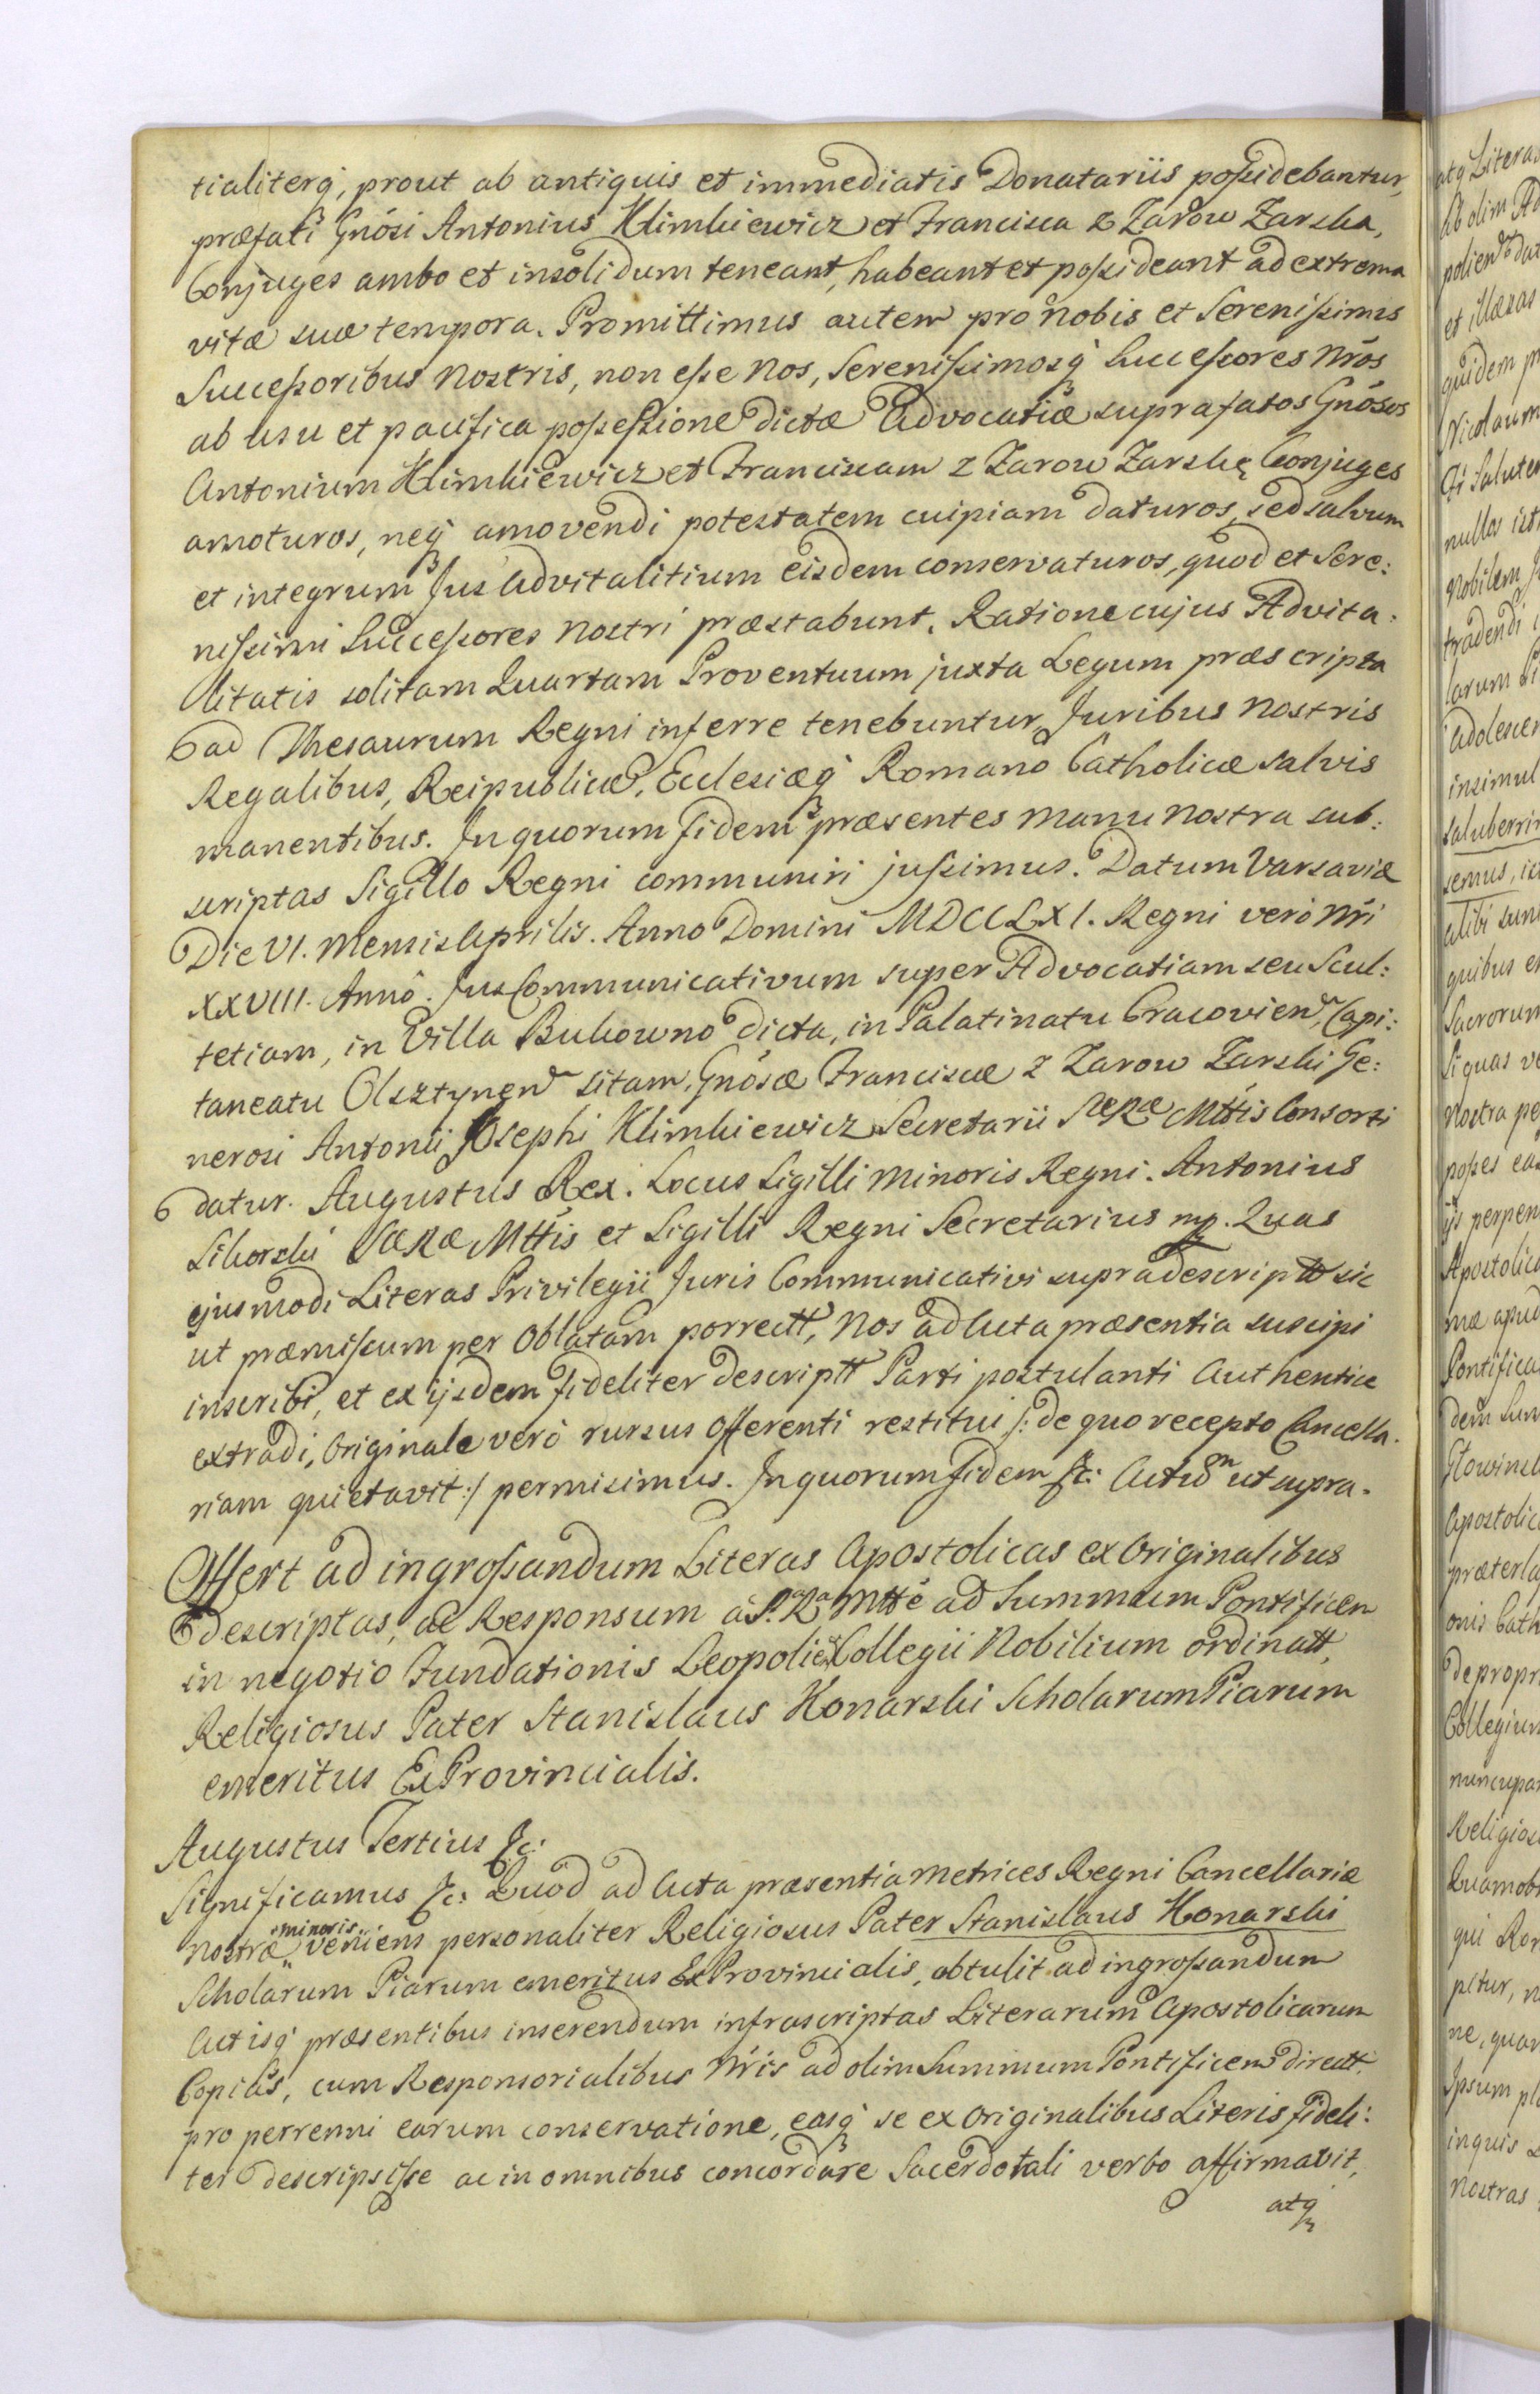 tialiterq́, prout ab antiquis et immediatis Donatariis poſsidebantur,
præfati Gnósi Antonius Klimkiewicz et Francisca z Zarow Zarska,
Conjuges ambo et insolidum teneant, habeant et poſsideant ad extrema
vitæ suæ tempora. Promittimus autem pro Nobis et Sereniſsimis
Succeſsoribus Nostris, non eſse Nos, Sereniſsimosq́ Succeſsores Nr̃os
ab usu et pacifica poſseſsione dictæ Advocatiæ suprafatos Gnósos
Antonium Klimkiewicz et Franciscam z Zarow Zarskę Conjuges
amoturos, neq́ amovendi potestatem cuipiam daturos, sed salvum
et integrum Jus Advitalitium eisdem conservaturos, quod et Sere:
niſsimi Succeſsores Nostri præstabunt. Ratione cujus Advita:
litatis solitam Quartam Proventuum juxta Legum præscripta
ad Thesaurum Regni inferre tenebuntur, Juribus Nostris
Regalibus, Reipublicæ, Ecclesiæq́ Romano Catholicæ salvis
manentibus. In quorum fidem præsentes Manu Nostra sub:
scriptas Sigillo Regni communiri juſsimus. Datum Varsaviæ
Die VI. Mensis Aprilis. Anno Domini MDCCLXI. Regni verò Nr̃i
XXVIII. Annô. Jus Communicativum super Advocatiam seu Scul:
tetiam, in Villa Bukowno dicta, in Palatinatu Cracovien, Capi:
taneatu Olsztynen sitam, Gnósæ Franciscæ z Zarow Zarski Ge:
nerosi Antonii Josephi Klimkiewicz Secretarii SæRæ Mttis Consorti
datur. Augustus Rex. Locus Sigilli Minoris Regni. Antonius
Sikorski SæRæ Mttis et Sigilli Regni Secretarius mp. Quas
ejusmodi Literas Privilegii Juris Communicativi supradescriptt sic
ut præmiſsum per Oblatam porrectt, Nos ad Acta præsentia suscipi
inscribi, et ex ijsdem fideliter descriptt Parti postulanti Authentice
extradi, Originale verò rursus Offerenti restitui /: de quo recepto Cancella.
riam quietavit :/ permisimus. In quorum fidem &c: Actum ut supra.
Offert ad ingroſsandum Literas Apostolicas ex Originalibus
descriptas, ac Responsum à S. Rª Mtté ad Summum Pontificem
in negotio Fundationis Leopolien Collegii Nobilium ordinatt,
Religiosus Pater Stanislaus Konarski Scholarum Piarum
emeritus ExProvincialis.
Augustus Tertius &c:
Significamus &c: Quod ad Acta præsentia Metrices Regni Cancellariæ
Nostræ minoris veniens personaliter Religiosus Pater Stanislaus Konarski
Scholarum Piarum emeritus ExProvincialis, obtulit ad ingroſsandum
Actisq́ præsentibus inserendum infrascriptas Literarum Apostolicarum
Copias, cum Responsorialibus Nr̃is ad olim Summum Pontificem directt.
pro perrenni earum conservatione, easq́ se ex Originalibus Literis fideli:
ter descripsiſse ac in omnibus concordare Sacerdotali verbo affirmavit,
atq́
atq́ Literas
olim
et illæsas
quidem
Nicolaum
Salutem
nullas
Nobilem
tradendi
larum
insimul
semus,
alibi
quibus
Sacrorum
Siquas
Nostra
poſses
perpen
Apostolica
apud
Pontifica
dem
Apostolica
onis Cath
de propr
Collegium
nuncupa
Religios
Quamob
qui Rom
ne, quam
Ipsum
inquis
Nostras